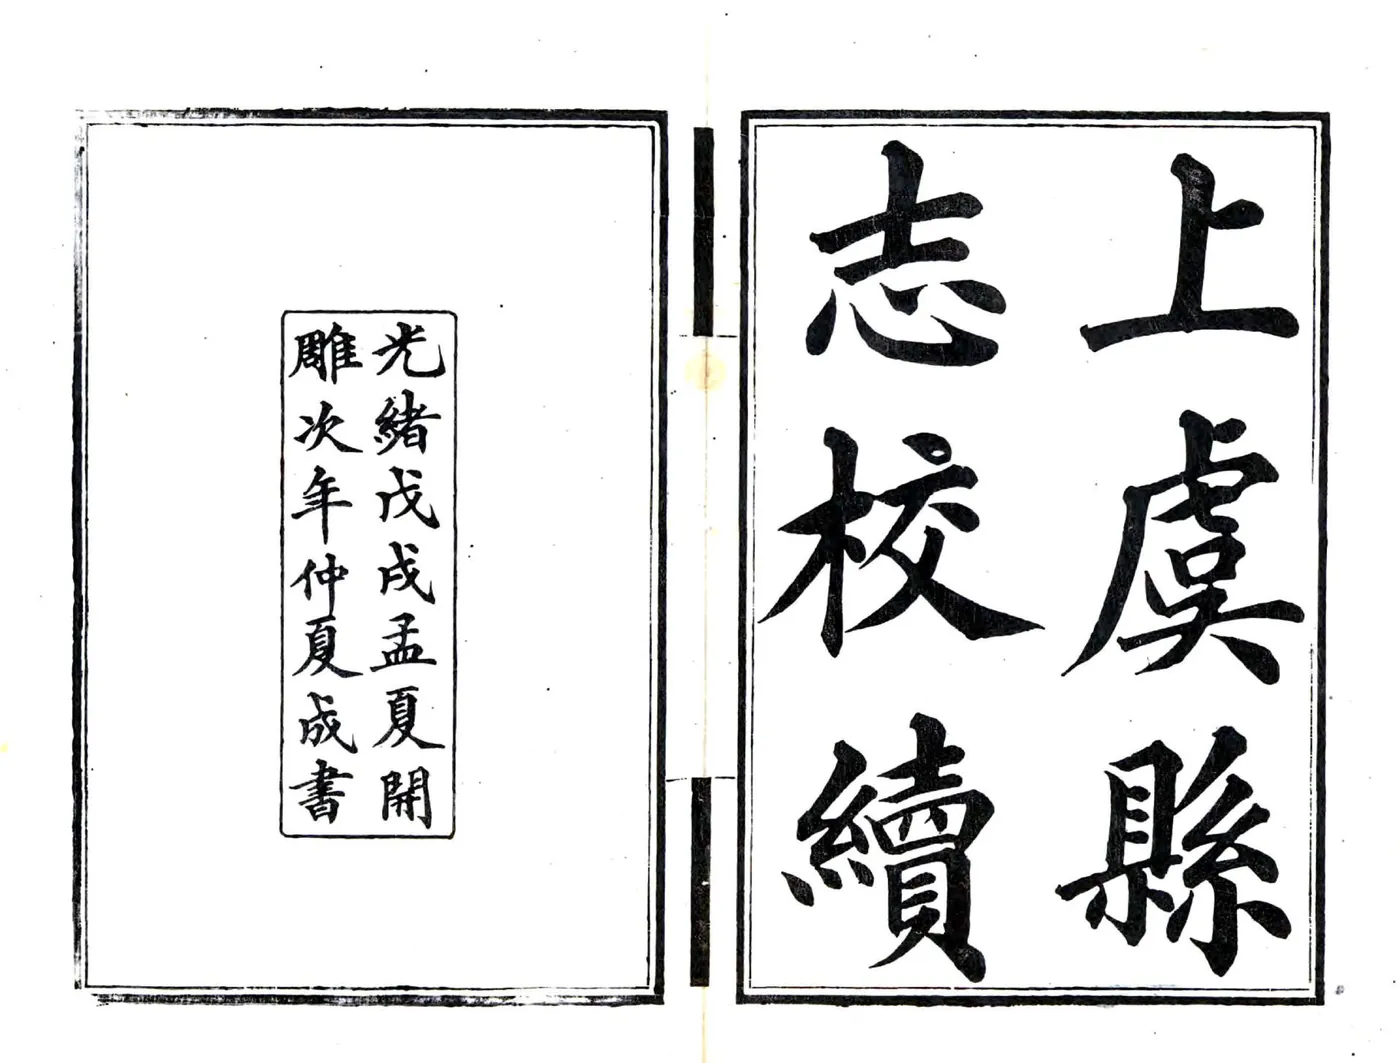 上虞縣
志校續
光緒戊戌孟夏開
雕次年仲夏成書